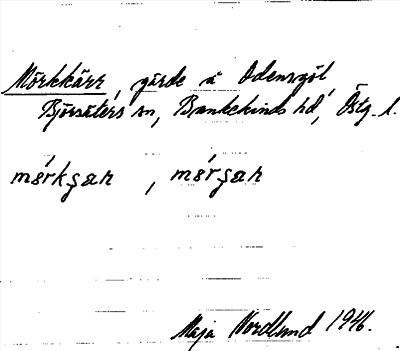 Mörkkärr, gärde å Odensgöl,
Björsäters sn, Bankekinds hd, Östg. l.
mørkʂaʀ, mørʂaʀ
Maja Nordlund 1946.